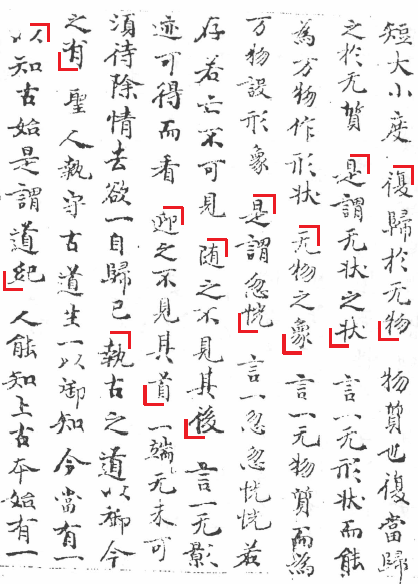 短大小度 復歸於无物 物質也復當歸
之於无質 是謂无狀之狀 言一无形狀而能
為万物作形狀 无物之象 言一无物質而為
万物設形象 是謂忽恍 言一忽忽恍恍若
存若亡不可見 随之不見其後 言一无影
迹可得而看 迎之不見其首 一端无末可
須待除情去欲一自歸已 執古之道以御今
之有 聖人執守古道生一以御知今當有一
以知古始是謂道紀 人能知上古本始有一